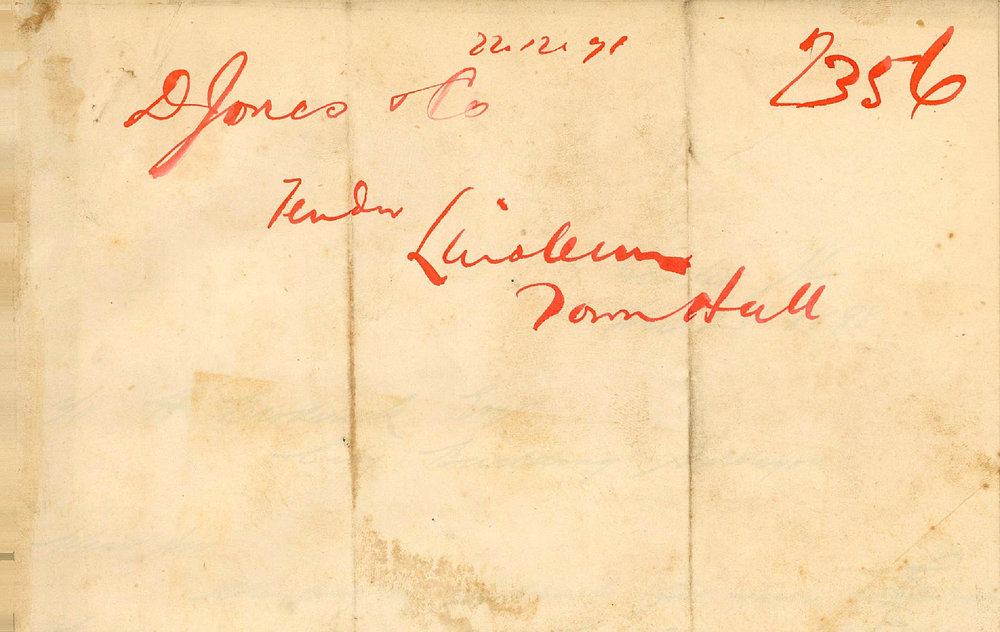 22.12.91
D Jones & Co
7356
Tender
Linoleum
Town Hall